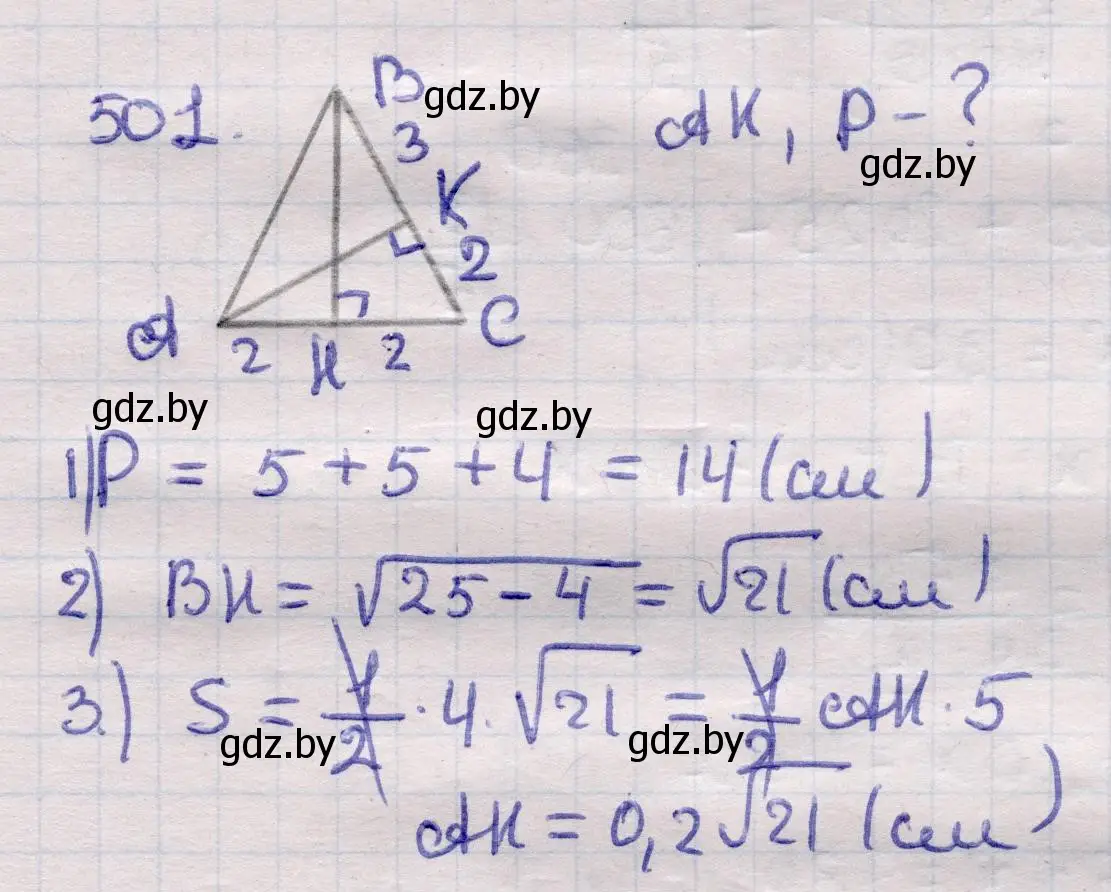 501.
B
gdz.by
AK, P - ?
3
gdz.by
K
2
A
C
2
H
2
gdz.by
gdz.by
1) P = 5 + 5 + 4 = 14 (см)
2) BH = √25 - 4 = √21 (см)
3.) S = 1/2 · 4 · √21 = 1/2 AK · 5
gdz.by
gdz.by
AK = 0,2√21 (см)